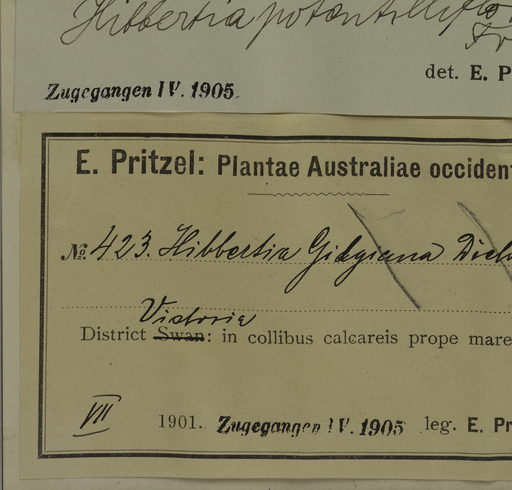 Hibbertia potentilliflo
det. E. P
Zugegangen IV. 1905.
E. Pritzel: Plantae Australiae occident
№ 423. Hibbertia Gilgiana Diels
Victoria
District Swan: in collibus calcareis prope mare
VII
1901. Zugegangen IV. 1905 leg. E. Pr